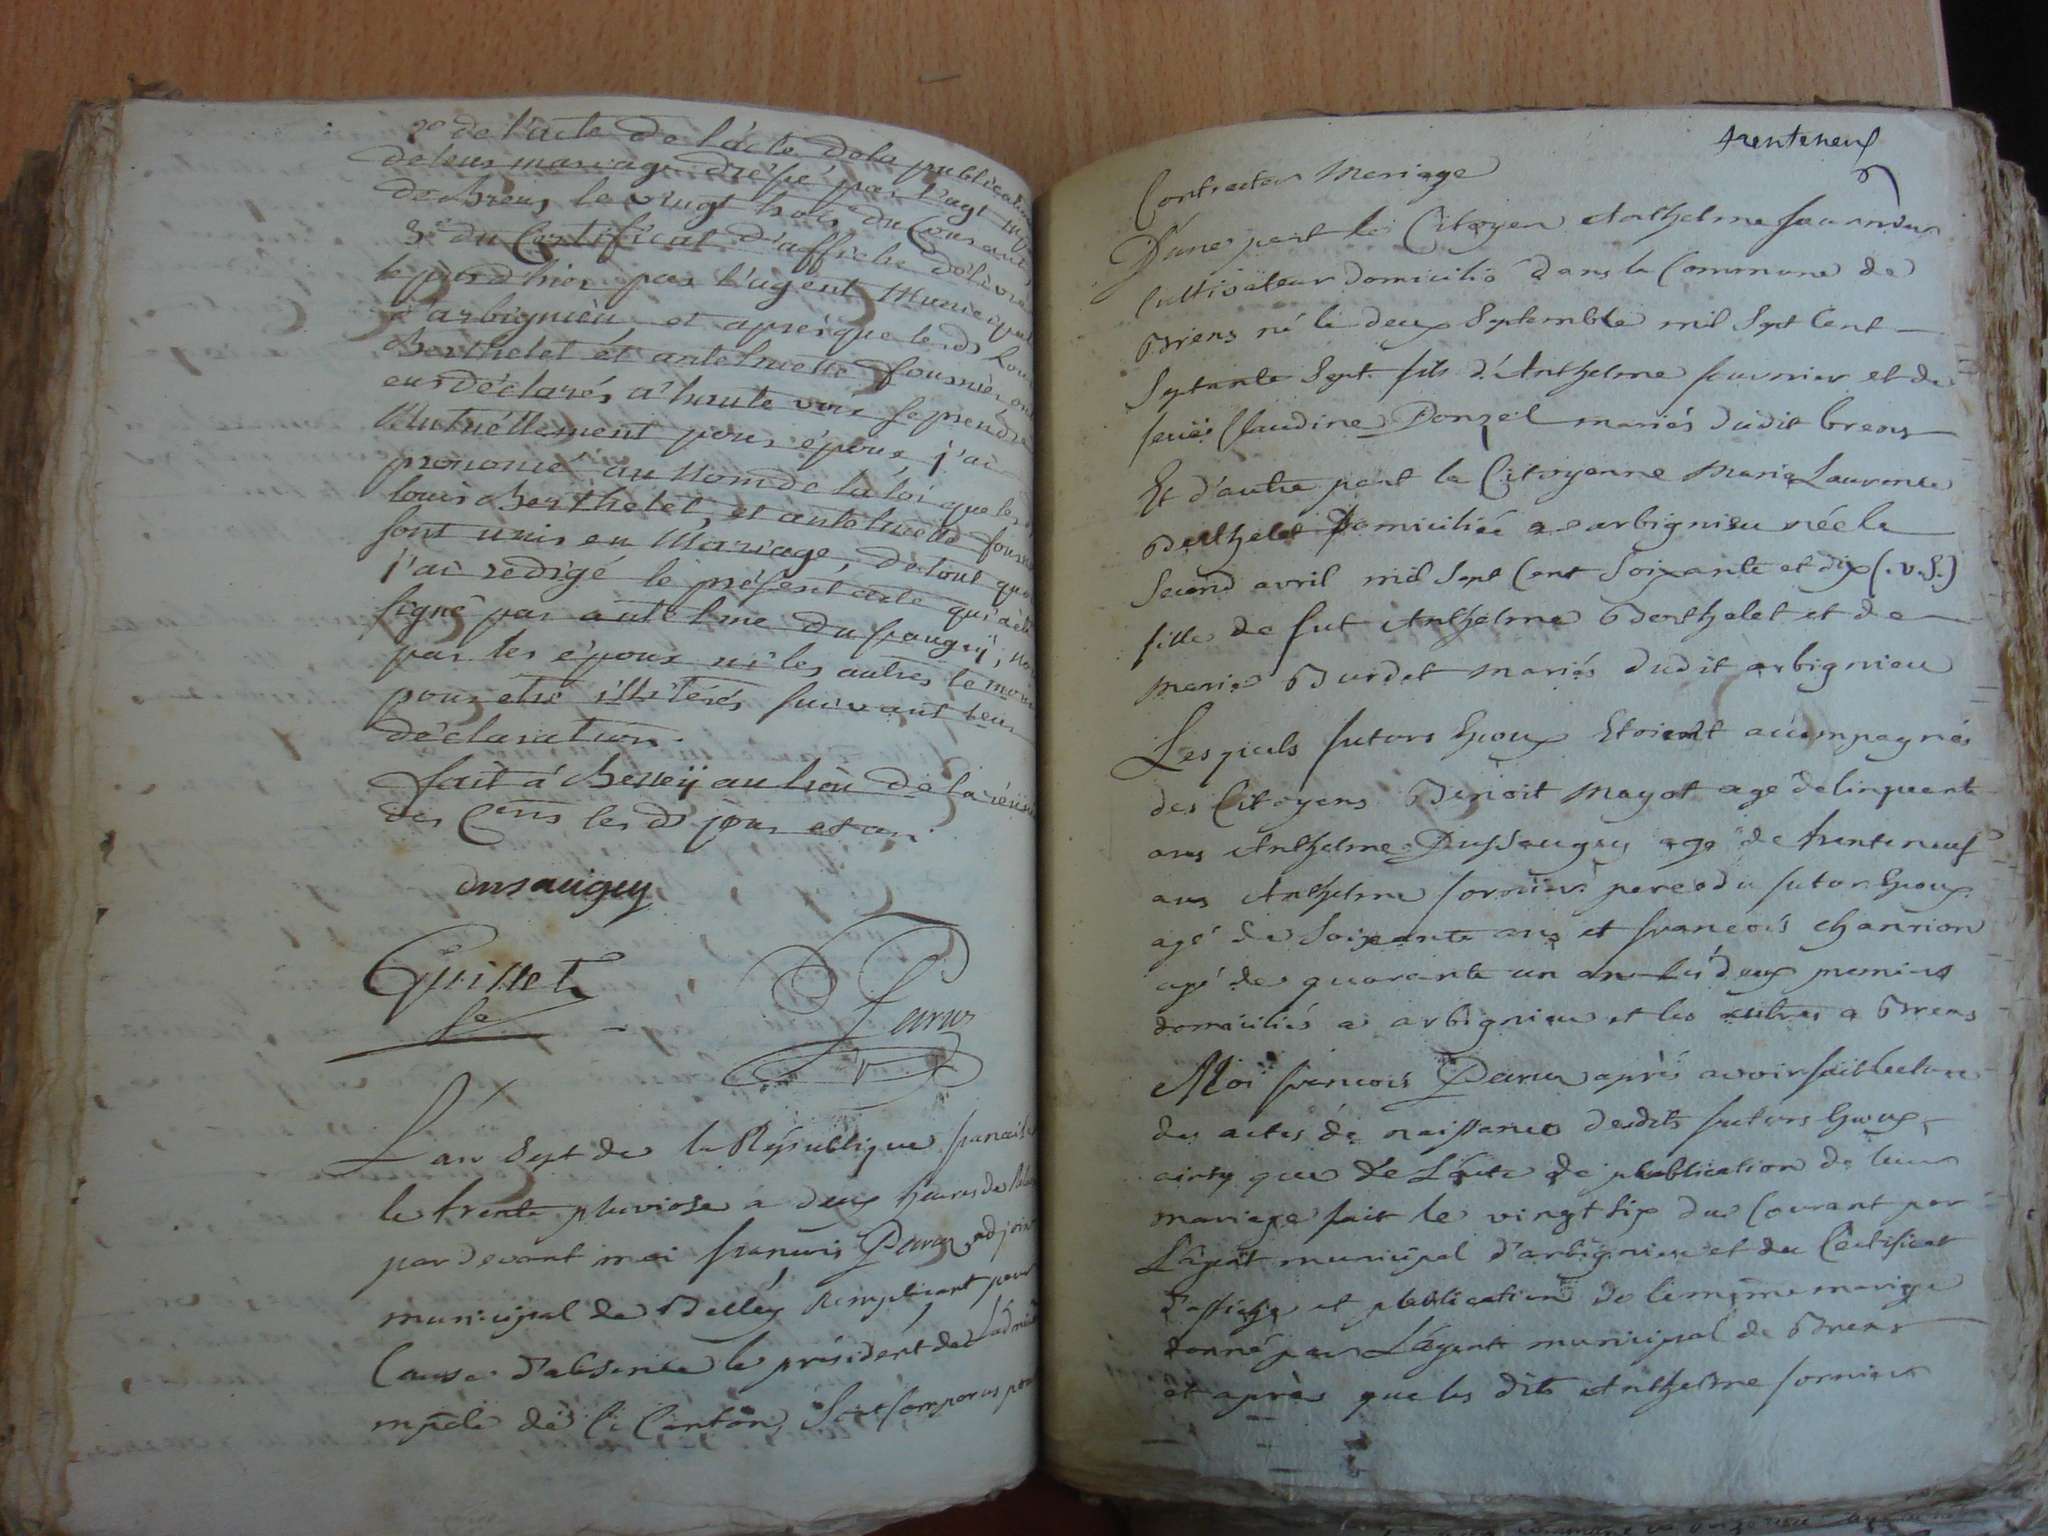 2o de l'acte de l'acte de la publication
de leur mariage dressé par l'agt
de Brens le vingt trois du Courant
3o du Certificat d'affiche délivré
le jour d'hier par l'agent Municipal
d'arbignieu, et après que les ds Louis
Berthelet et antelmette fournier ont
eus déclarés a haute voix se prendre
Mutuéllement pour époux j'ai
prononcé au Nom de la loi que les ds
louis Berthelet, et antelmette
sont unis en Mariage, de tout quoi
j'ai redigé le présent acte qui a été
signé par antelme du saugey, non
par les époux ni les autres témoins
pour être illitérés suivant leur
déclaration.
fait á Belley au lieu de la réunion
des Cens les ds jour et an.
dusaugey
Guillet
Parus
L'an Sept de la République francaise
le trente pluviose a deux heures de
par devant moi francois Parus adjoint
municipal de Belley Remplacant pour
Cause d'absence le président de L'admon
mple de Ce Canton, Sont Comparus pour
trente neuf
Contracter Mariage
D'une part le Citoyen Anthelme fournier
Cultivateur domicilié dans la Commune de
Brens né le deux Septembre mil Sept Cent
Septante Sept fils d'Anthelme fournier et de
feuë Claudine Ponzel mariés dudit brens
Et d'autre part la Citoyenne Marie Laurence
Berthelet Domiciliée a arbignieu née le
Second avril mil Sept Cent Soixante et dix (. v. S.)
fille de fut Anthelme Berthelet et de
Marie Burdet Mariés dudit arbignieu
Lesquels futurs Epoux Etoient acompagnés
des Citoyens Benoit Mayot agé de Cinquante
ans Anthelme Dussaugey agé de trente neuf
ans Anthelme fornier père du futur Epoux
agé de Soixante ans et francois chanrion
agé de quarante un an les deux premiers
domiciliés a arbignieu et les autres a Brens
Moi francois Parus après avoir fait Lecture
des actes de naissance desdits futurs Epoux,
ainsy que de L'acte de publication de leur
mariage fait le vingt Six du Courant par
L'agent municipal d'arbignieu et du Certificat
d'affiche et publication de le même mariage
donné par L'agent municipal de Brens
et après que les dits Anthelme fornier